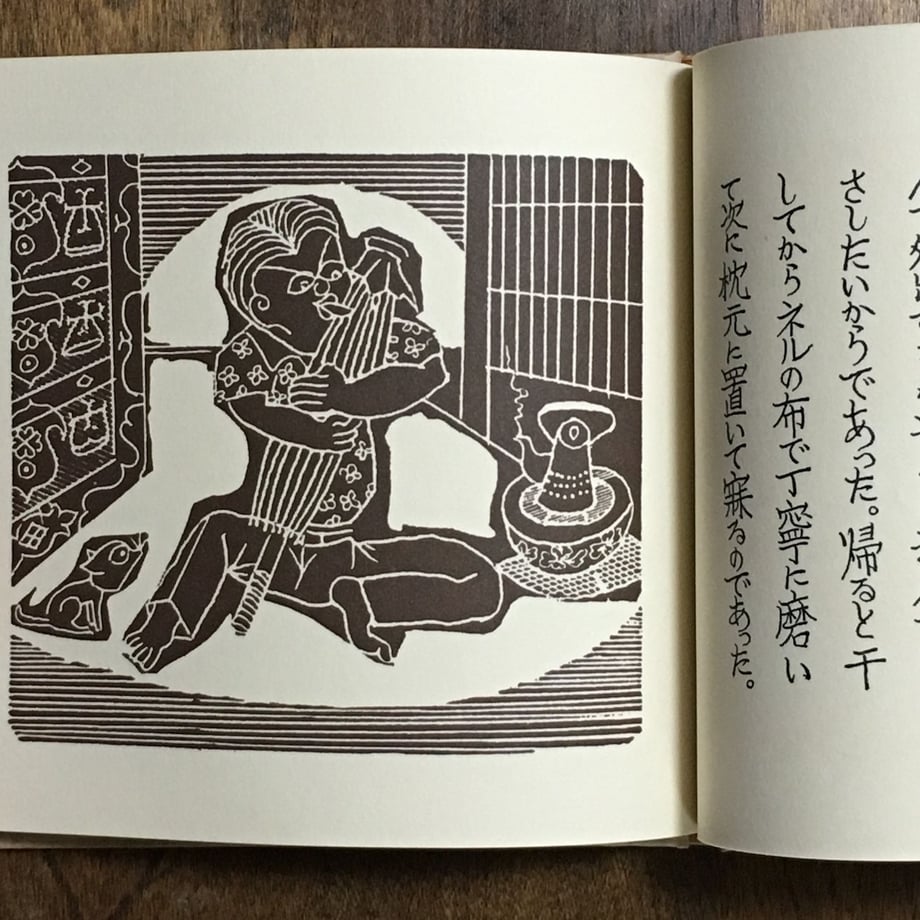 さしたいからであった。帰ると干
してからネルの布で丁寧に磨い
て次に枕元に置いて寐るのであった。